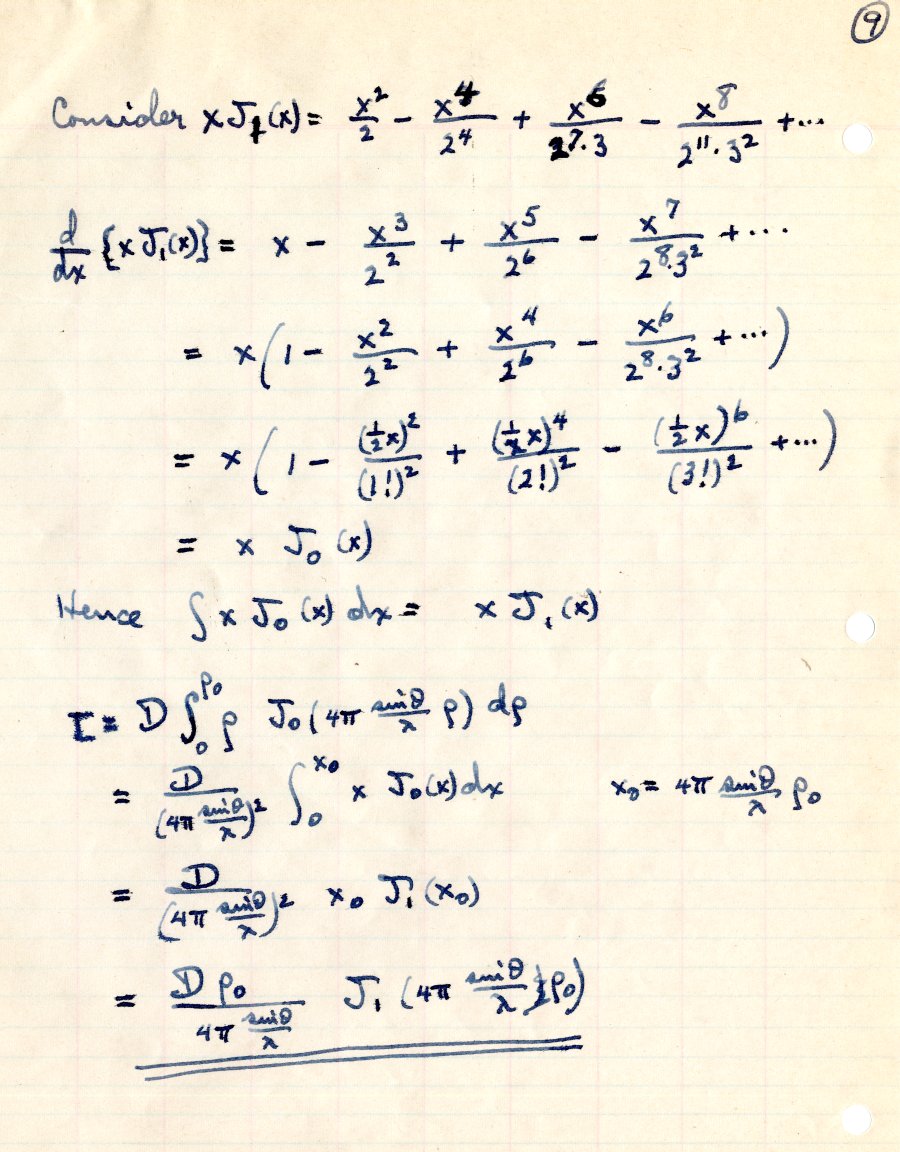 9
Consider xJ₁(x) = x²/2 − x⁴/2⁴ + x⁶/(2⁷·3) − x⁸/(2¹¹·3²) + ···
d/dx {x J₁(x)} = x − x³/2² + x⁵/2⁶ − x⁷/(2⁸·3²) + ···
= x(1 − x²/2² + x⁴/2⁶ − x⁶/(2⁸·3²) + ···)
= x(1 − (½x)²/(1!)² + (½x)⁴/(2!)² − (½x)⁶/(3!)² + ···)
= x J₀(x)
Hence ∫ x J₀(x) dx = x J₁(x)
I = D ∫₀^ρ₀ ρ J₀(4π sinθ/λ ρ) dρ
= D/(4π sinθ/λ)² ∫₀^x₀ x J₀(x) dx x₀ = 4π sinθ/λ ρ₀
= D/(4π sinθ/λ)² x₀ J₁(x₀)
= D ρ₀/(4π sinθ/λ) J₁(4π sinθ/λ ρ₀)